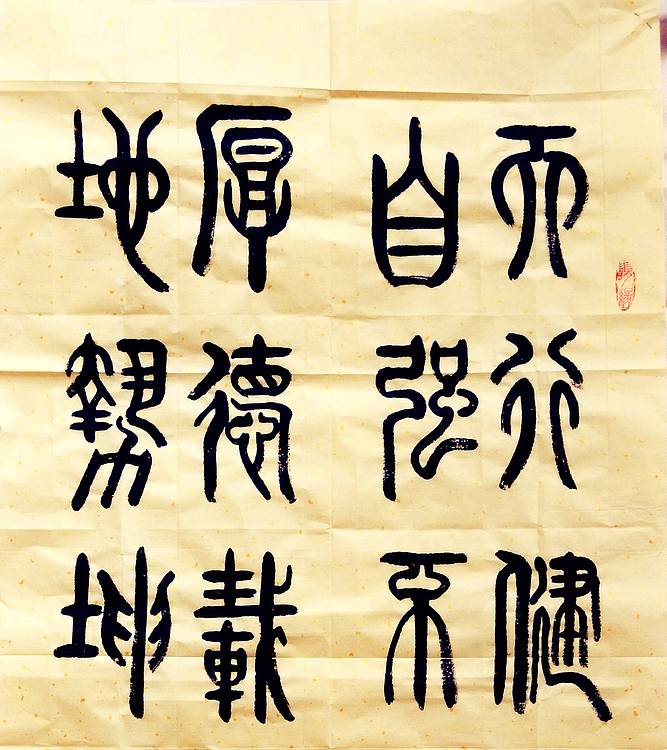 天行健
自强不
厚德載
地勢坤